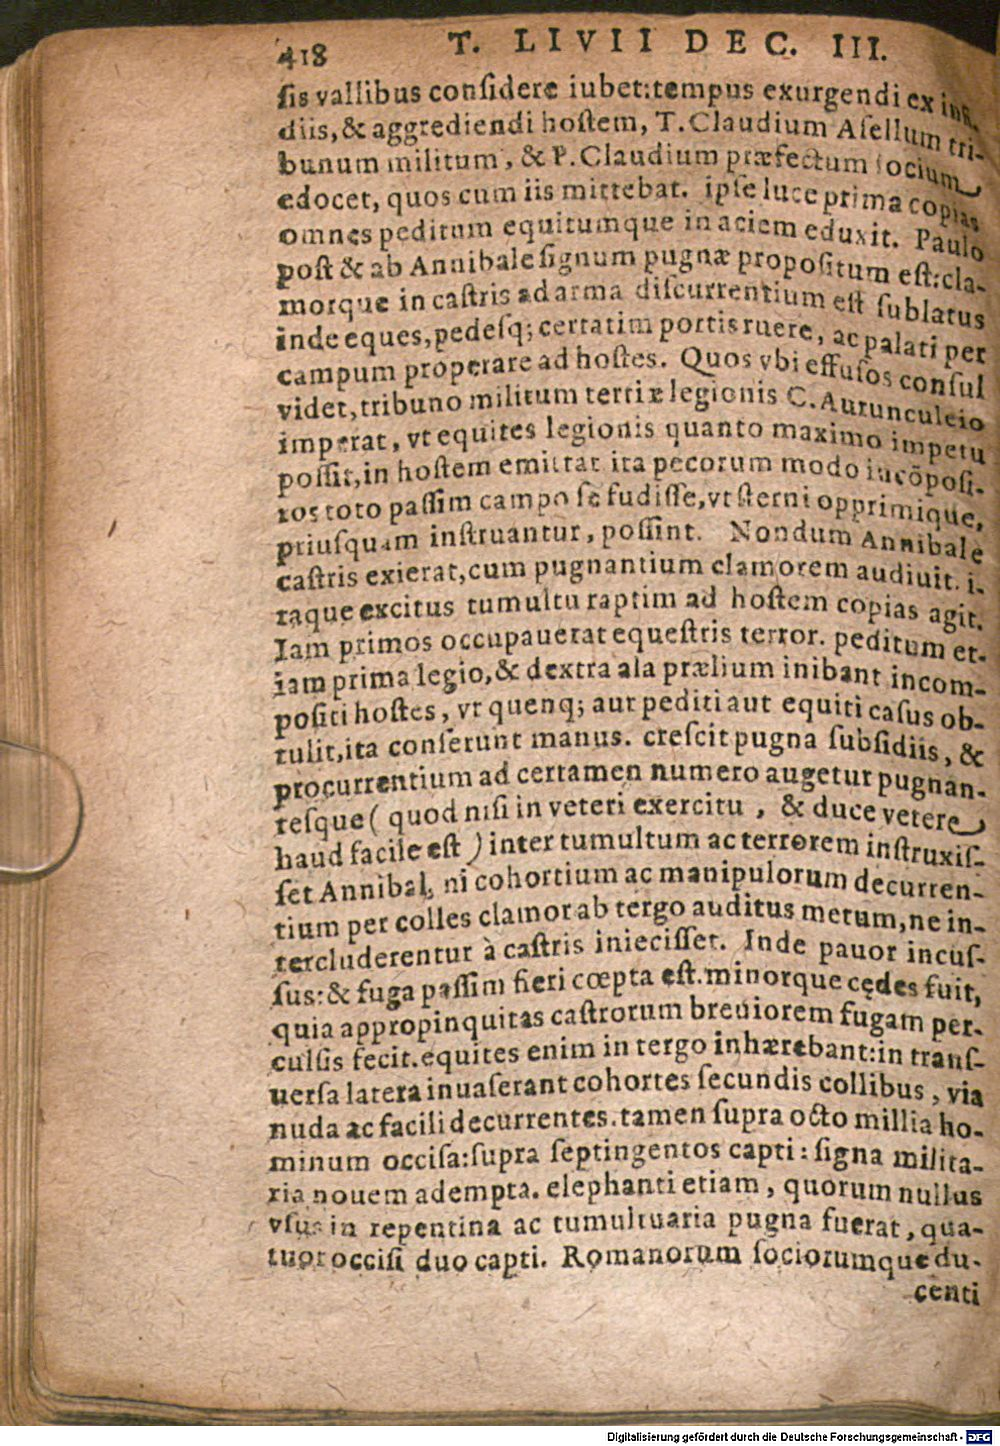 418 T. LIVII DEC. III.
ſis vallibus conſidere iubet:tempus exurgendi ex inſi-
diis,& aggrediendi hoſtem, T.Claudium Aſellum tri-
bunum militum, & P.Claudium præfectum ſocium
edocet, quos cum iis mittebat. ipſe luce prima copias
omnes peditum equitumque in aciem eduxit. Paulo
poſt & ab Annibale ſignum pugnæ propoſitum eſt:cla-
morque in caſtris ad arma diſcurrentium eſt ſublatus
inde eques,pedeſq; certatim portis ruere, ac palati per
campum properare ad hoſtes. Quos vbi effuſos conſul
videt,tribuno militum tertiæ legionis C.Aurunculeio
imperat, vt equites legionis quanto maximo impetu
poſſit,in hoſtem emittat ita pecorum modo incõpoſi-
tos toto paſſim campo ſe fudiſſe,vt ſterni opprimique,
priuſquam inſtruantur, poſſint. Nondum Annibal è
caſtris exierat,cum pugnantium clamorem audiuit. i-
taque excitus tumultu raptim ad hoſtem copias agit.
Iam primos occupauerat equeſtris terror. peditum et-
iam prima legio,& dextra ala prælium inibant incom-
poſiti hoſtes, vt quenq; aut pediti aut equiti caſus ob-
tulit,ita conſerunt manus. creſcit pugna ſubſidiis, &
procurrentium ad certamen numero augetur pugnan-
teſque ( quod niſi in veteri exercitu, & duce vetere
haud facile eſt ) inter tumultum ac terrorem inſtruxiſ-
ſet Annibal, ni cohortium ac manipulorum decurren-
tium per colles clamor ab tergo auditus metum,ne in-
tercluderentur à caſtris inieciſſet. Inde pauor incuſ-
ſus:& fuga paſſim fieri cœpta eſt.minorque cędes fuit,
quia appropinquitas caſtrorum breuiorem fugam per-
culſis fecit.equites enim in tergo inhærebant:in tranſ-
uerſa latera inuaſerant cohortes ſecundis collibus, via
nuda ac facili decurrentes.tamen ſupra octo millia ho-
minum occiſa:ſupra ſeptingentos capti: ſigna milita-
ria nouem adempta. elephanti etiam, quorum nullus
vſus in repentina ac tumultuaria pugna fuerat, qua-
tuor occiſi duo capti. Romanorum ſociorumque du-
centi
Digitalisierung gefördert durch die Deutsche Forschungsgemeinschaft - DFG